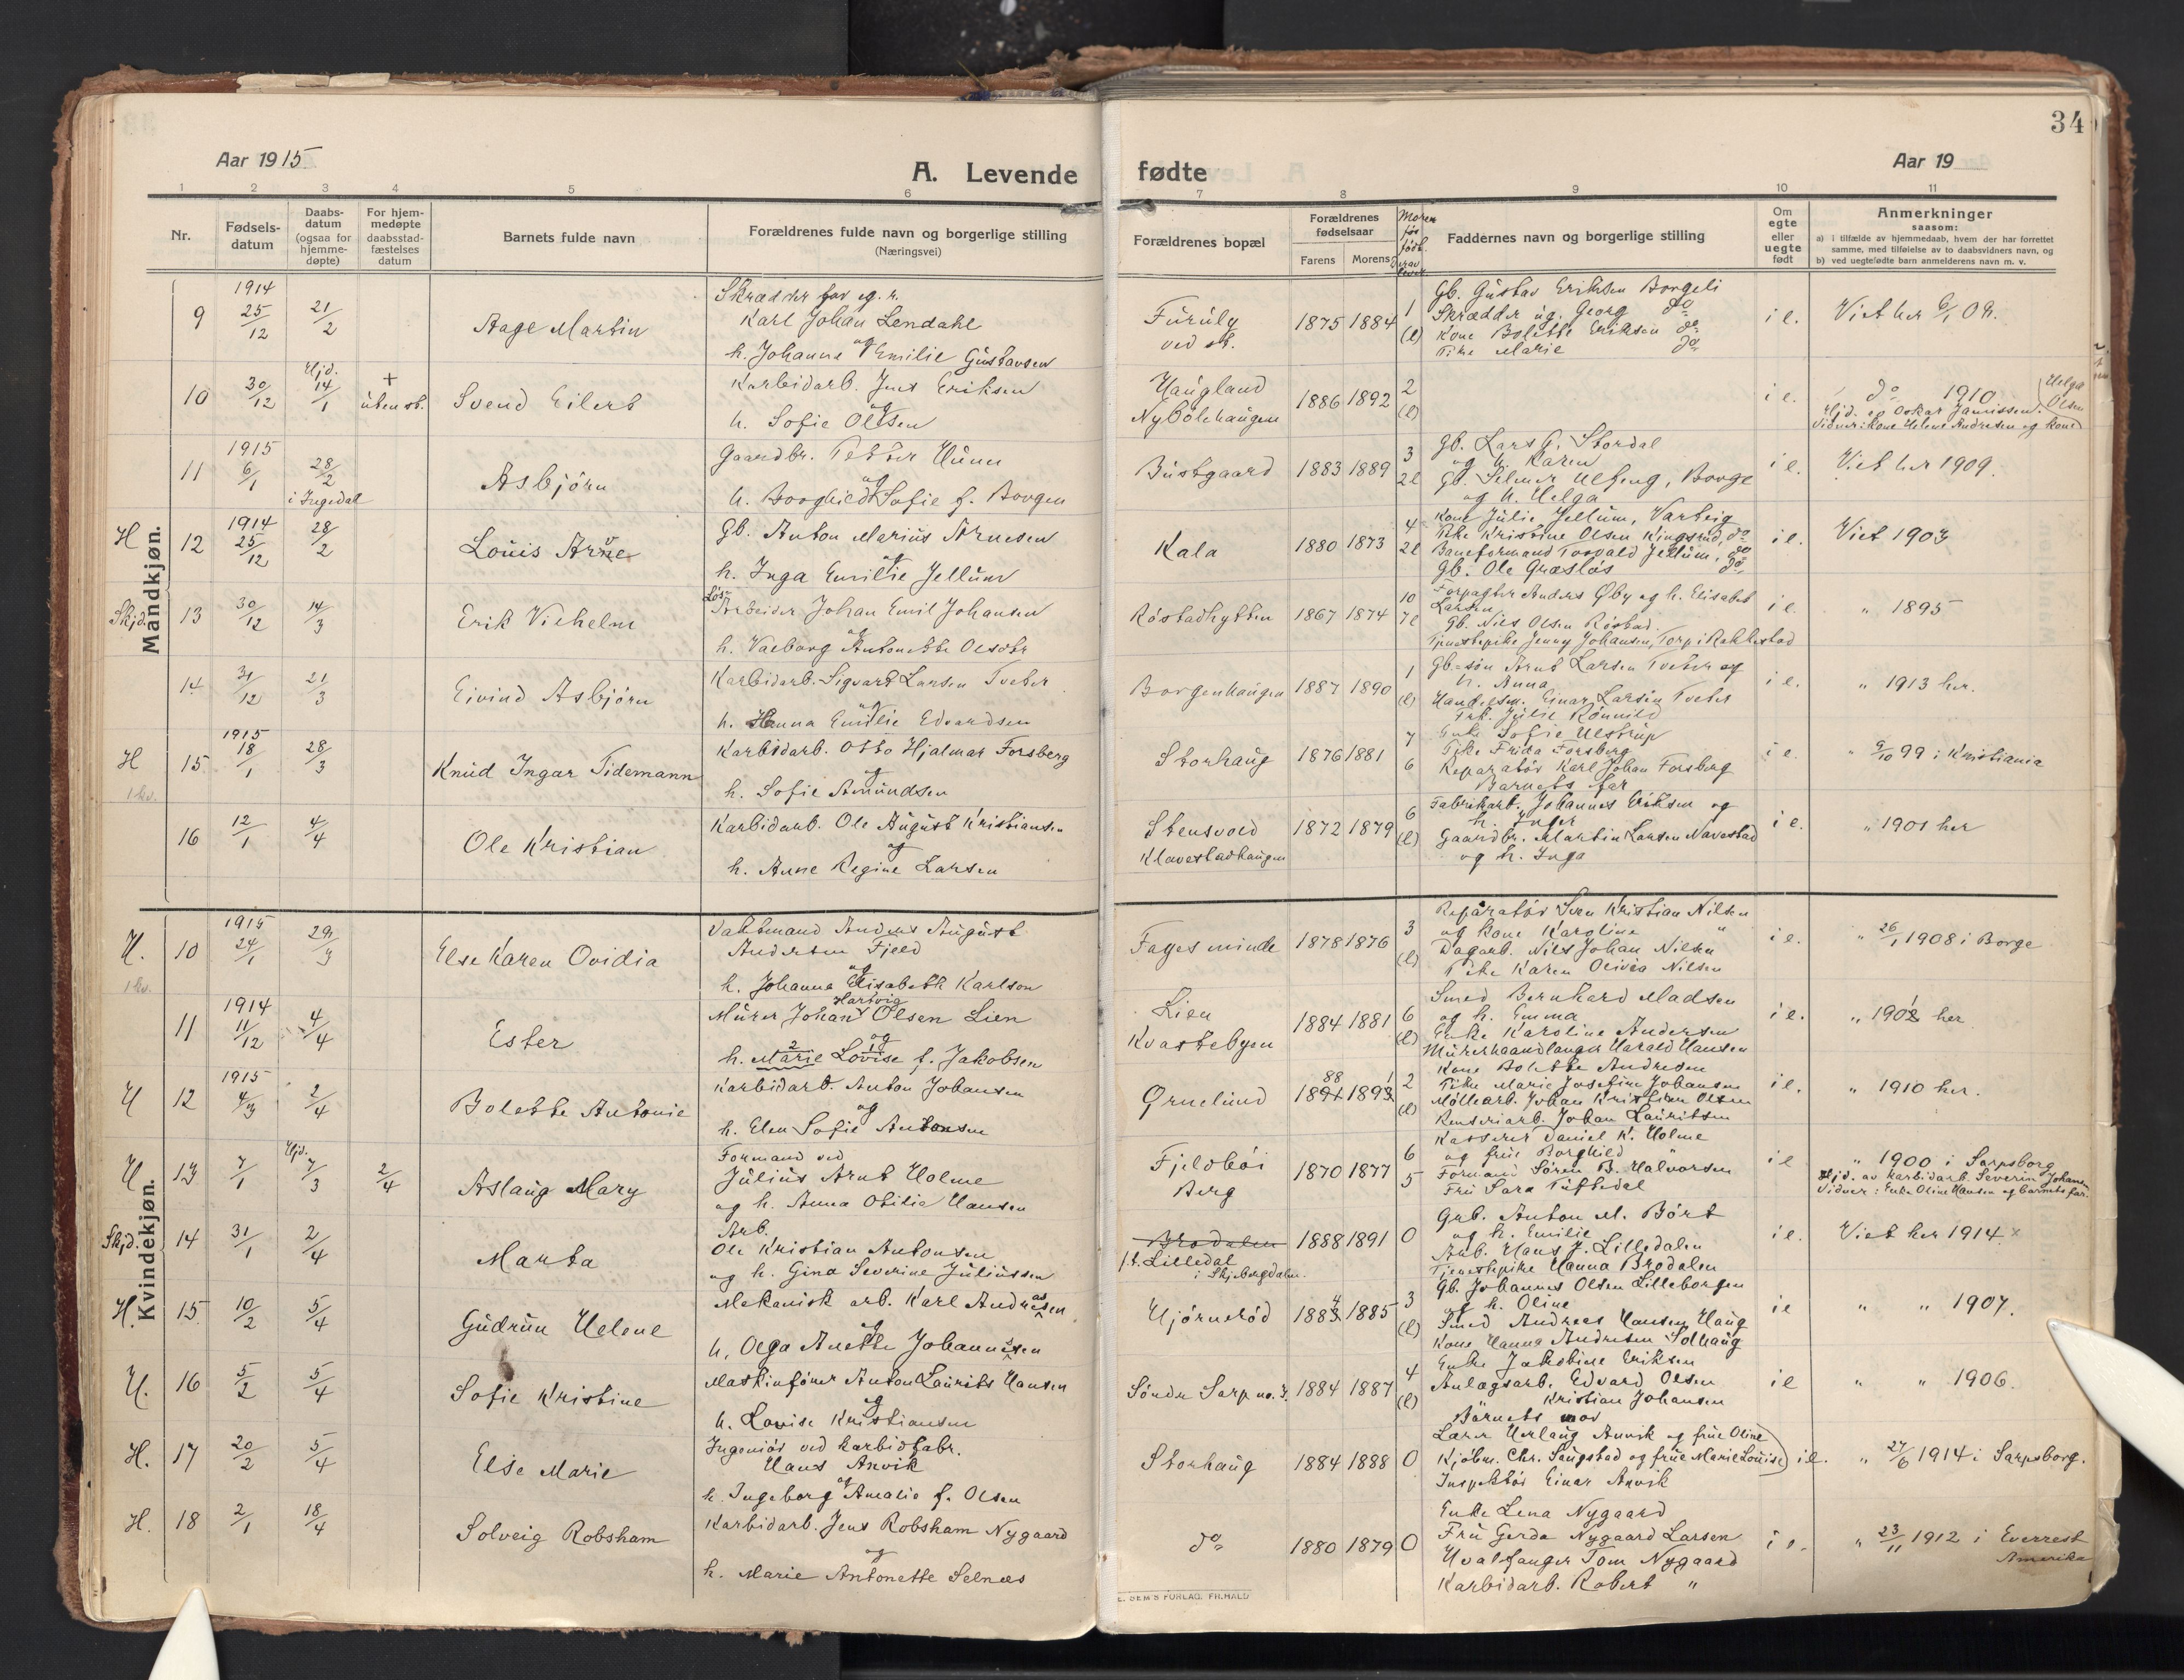 34
Aar 1915
A. Levende fødte
Aar 19
1 2 3 4 5 6 7 8 9 10 11
Nr.
Fødsels-
datum
Daabs-
datum
(ogsaa for
hjemme-
døpte)
For hjem-
medøpte
daabsstad-
fæstelses
datum
Barnets fulde navn
Forældrenes fulde navn og borgerlige stilling
(Næringsvei)
Forældrenes bopæl
Forældrenes
fødselsaar
Farens Morens
Faddernes navn og borgerlige stilling
Om
egte
eller
uegte
født
Anmerkninger
saasom:
a) i tilfælde av hjemmedaab, hvem der har forrettet
samme, med tilføielse av to daabsvidners navn, og
b) ved uegtefødte barn anmelderens navn m. v.
Mandkjøn.
9 1914 25/12 21/2 Aage Martin
Skrædder for eg. r.
Karl Johan Lendahl
og
h. Johanne Emilie Gustavsen
Furuly
ved st.
1875 1884 1 (l)
Gb. Gustav Eriksen Borgeli
Skrædder ug. Georg do
Kone Bolette Eriksen do
Pike Marie do
i e. Viet her 6/1 09.
10 30/12 Hjd. 14/1 + uten st. Svend Eilert
Karbidarb. Jens Eriksen
og
h. Sofie Olsen
Haugland
Nybölehaugen
1886 1892 2 (l)
i e. do 1910
Hjd. av Oskar Jamissen.
Vidner: kone Helene Andresen og kone Helga Olsen
11 1915 6/1 28/2 i Ingedal Asbjörn
Gaardbr. Petter Hunn
og
h. Borghild Sofie f. Borgen
Bustgaard
1883 1889 3 2l
Gb. Lars G. Stordal
og h. Karen
Gb. Helmer Ulfeng, Borge
og h. Helga
i e. Viet her 1909.
H 12 1914 25/12 28/2 Louis Arne
Gb. Anton Marius Arnesen
og
h. Inga Emilie Jellum
Kala
1880 1873 4 2l
Kone Julie Jellum, Varteig
Pike Kristine Olsen Kingsrud, do
Baneformand Torvald Jellum, do
Gb. Ole Græslös do
i e. Viet 1903
Skjd. 13 30/12 14/3 Erik Vilhelm
Lös-
Arbeider Johan Emil Johansen
og
h. Valborg Antonette Olsdtr
Röstadhytten
1867 1874 10 7l
Forpagter Anders Øby og h. Elisabet
Larsen
Gb. Nils Olsen Röstad.
Tjenestepike Jenny Johansen, Torp i Rakkestad
i e. " 1895
14 31/12 21/3 Eivind Asbjörn
Karbidarb. Sigvart Larsen Tveter
og
h. Hanna Emilie Edvardsen
Borgenhaugen
1887 1890 1 (l)
Gb.-sön Arnt Larsen Tveter og
h. Anna
Handelsm. Einar Larsen Tveter
Frk. Julie Rönnild
i e. " 1913 her.
H 15 1915 18/1 28/3 Knud Ingar Tidemann
1 kv.
Karbidarb. Otto Hjalmar Forsberg
og
h. Sofie Amundsen
Storhaug
1876 1881 7 6
Enke Sofie Ulstrup
Pike Frida Forsberg
Reparatör Karl Johan Forsberg
Barnets far
i e. " 9/10 99 i Kristiania
16 12/1 4/4 Ole Kristian
Karbidarb. Ole August Kristiansen
og
h. Anne Regine Larsen
Stensvold
Klavestadhaugen
1872 1879 6 (l)
Fabrikarb. Johannes Eriksen og
h. Inger
Gaardbr. Martin Larsen Navestad
og h. Inga
i e. " 1901 her
Kvindekjøn.
H. 10 1915 24/1 29/3 Else Karen Ovidia
1 kv.
Vaktmand Anders August
Andersen Fjeld
og
h. Johanna Elisabeth Karlson
Fagesminde
1878 1876 3 (l)
Reparatör Sven Kristian Nilsen
og kone Karoline "
Dagarb. Nils Johan Nilsen
Pike Karen Olivia Nilsen
i e. " 26/1 1908 i Borge
11 1914 11/12 4/4 Ester
Murer Johan Hartvig Olsen Lien
og
h. Marie Lovise f. Jakobsen
Lien
Kvastebyen
1884 1881 6 (l)
Smed Bernhard Madsen
og h. Emma
Enke Karoline Andersen
Murerhaandlanger Harald Hansen
i e. " 1901 her
H 12 1915 4/3 2/4 Bolette Antonie
Karbidarb. Anton Johansen
og
h. Elen Sofie Antonsen
Grnelund
1888 1891 2 (l)
Kone Bolette Andresen
Pike Marie Josefine Johansen
Möllearb. Johan Kristian Olsen
Renseriarb. Johan Lauritsen
i e. " 1910 her.
H 13 7/1 Hjd. 7/3 2/4 Aslaug Mary
Formand ved
Julius Arnt Holme
og h. Anna Otilie Hansen
Fjeldböi
Berg
1870 1877 6 5
Kasserer Daniel K. Holme
og frue Borghild
Formand Sören B. Halvorsen
Fru Sara Tuftedal
i e " 1900 i Sarpsborg
Hjd. av karbidarb. Severin Johansen
Vidner: Enke Oline Hansen og barnets far.
Skjd. 14 31/1 2/4 Marta
Arb.
Ole Kristian Antonsen
og h. Gina Severine Juliussen
Brodalen
f.t. Lilledal
i Skjebergdalen.
1888 1891 0
Grb. Anton M. Bört
og h. Emilie
Arb. Hans J. Lilledalen
Tjenestepike Hanna Brodalen
i e. Viet her 1914. x
H. 15 10/2 5/4 Gudrun Helene
Mekanisk arb. Karl Andreassen
og
h. Olga Anette Johannesen
Hjörneröd
1884 1885 3 (l)
Gb. Johannes Olsen Lilleborgen
og h. Oline
Smed Andreas Hansen Haug
Kone Hanna Andresen Solhaug
i e " " 1907.
H. 16 5/2 5/4 Sofie Kristine
Maskinförer Anton Laurits Hansen
og
h. Lovise Kristiansen
Söndre Sarp no. 7.
1884 1887 4 (l)
Enke Jakobine Eriksen
Anlægsarb. Edvard Olsen
Kristian Johansen
Barnets mor
i e " " 1906.
H. 17 20/2 5/4 Else Marie
Ingeniör ved karbidfabr.
Hans Anvik
og
h. Ingeborg Amalie f. Olsen
Storhaug
1884 1888 0
Lærer Herlaug Anvik og frue Oline
Kjöbm. Chr. Saugstad og frue Marie Louise
Inspektör Einar Anvik
i e. " 27/6 1914 i Sarpsborg.
H. 18 2/1 18/4 Solveig Robsham
Karbidarb. Jens Robsham Nygaard
og
h. Marie Antonette Selnæs
do
1880 1879 0
Enke Lena Nygaard
Fru Gerda Nygaard Larsen
Hvalfanger Tom Nygaard
Karbidarb. Robert "
i e. " 23/11 1912 i Everrest
Amerika
E. SEM'S FORLAG. FR.HALD